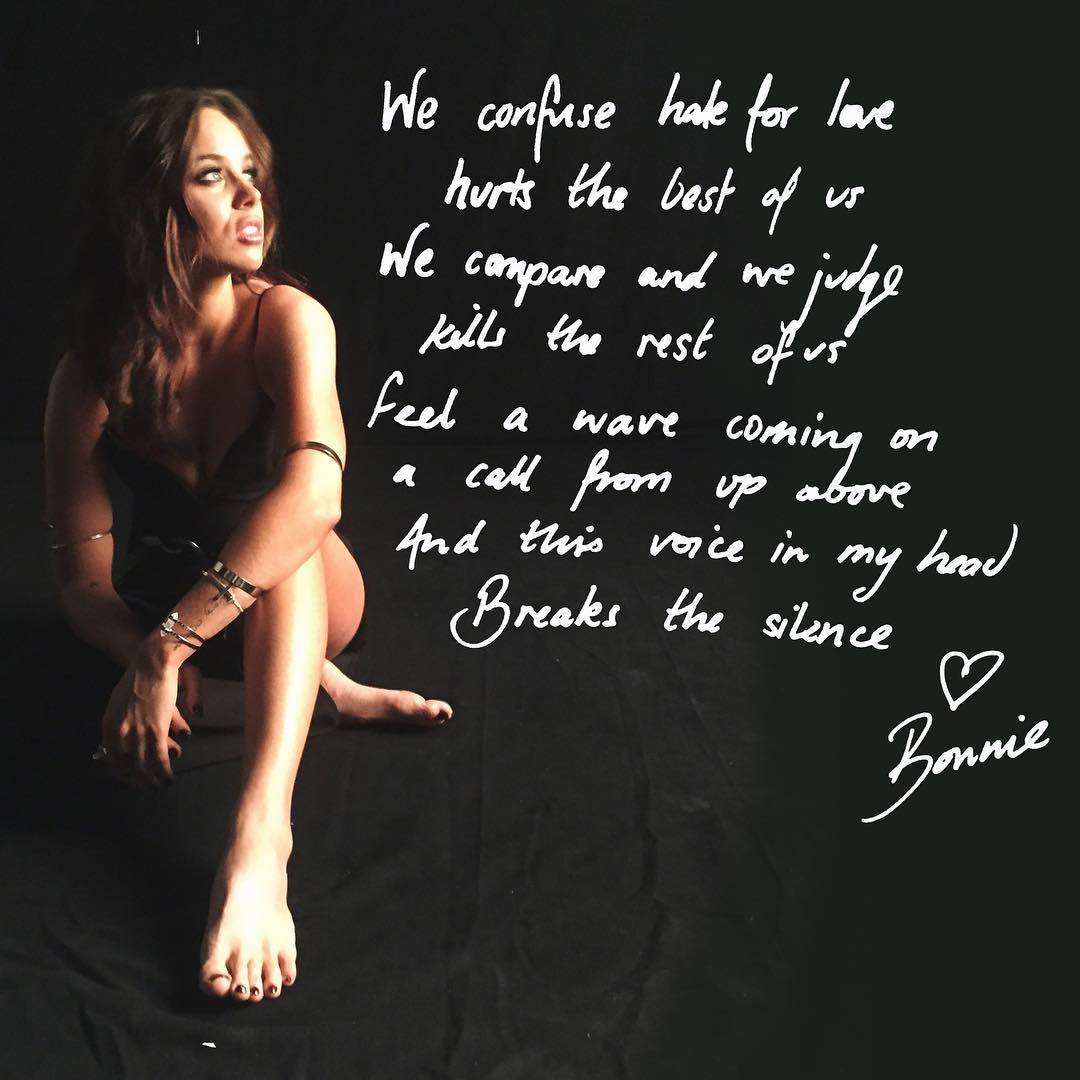 We confuse hate for love
hurts the best of us
We compare and we judge
kills the rest of us
feel a wave coming on
a call from up above
And this voice in my head
Breaks the silence
Bonnie